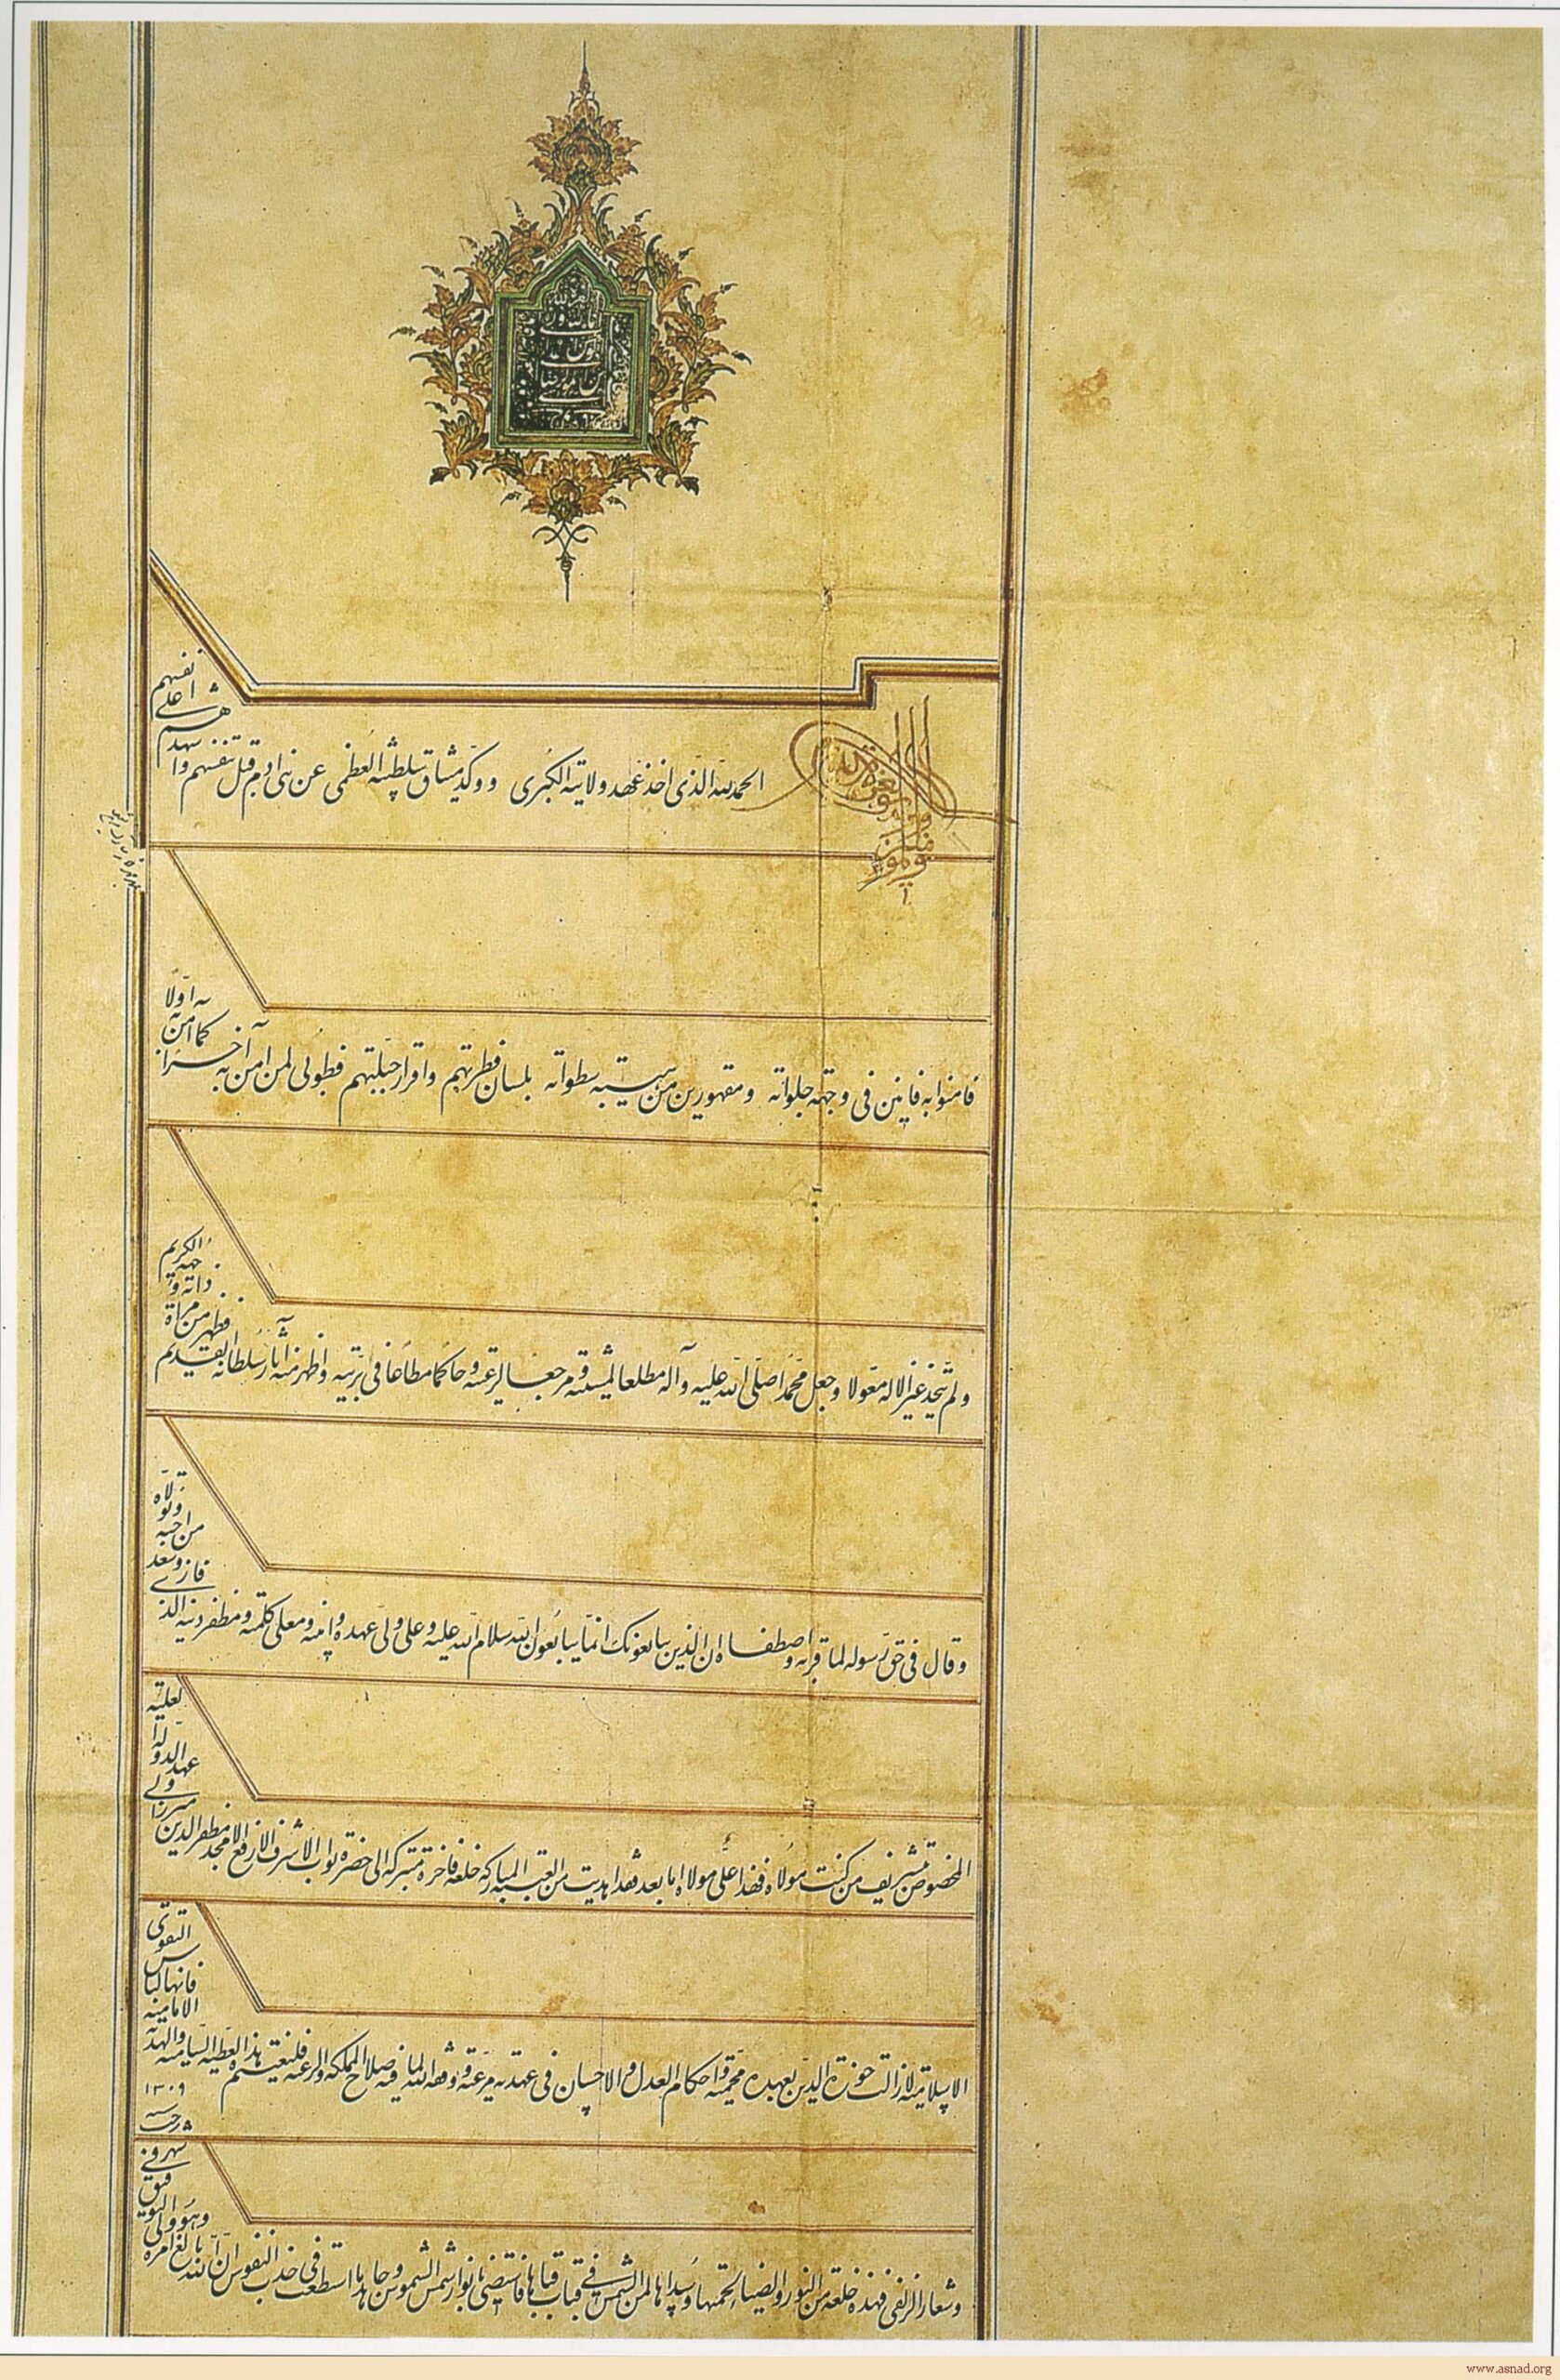 الحمد لله الذی اخذ عهد ولایته الکبری ووکد میثاق سلطنته العظمی عن بنی ادم قبل تنفسهم واشهدهم علی انفسهم
فامنوا به فانین فی وجهة جلواته ومقهورین من هیبته سطواته بلسان فطرتهم واقرار جبلتهم فطوبی لمن امن به آخرا کما امن به اولا
ولم یتخذ غیر الاله معولا وجعل محمدا صلی الله علیه وآله مطلعا لمشیته ومرجعا لرعیته وحاکما مطاعا فی بریته واظهر منه آثار سلطانه القدیم فظهر من مرآة ذاته وجهه الکریم
وقال فی حق رسوله لما قربه واصطفاه ان الذین یبایعونک انما یبایعون الله سلام الله علیه وعلی ولی عهده وامینه ومعلی کلمته ومظفر دینه الذی فاز وسعد من احبه وتولاه
المخصوص بتشریف من کنت مولاه فهذا علی مولاه اما بعد فقد اهدیت من العتبة المبارکه خلعة فاخرة متبرکه الی حضرة نواب الاشرف الارفع الامجد مظفر الدین میرزا ولی عهد الدولة العلیة
الاسلامیة لازالت حوزة الدین بعهده محمیة واحکام العدل والاحسان فی عهدته مرعیة ووفقه الله لما فیه صلاح المملکه والرعیه فلیغتنم هذا العطیه السامیه والهدیة الامامیه فانها لباس التقوی
وشعار الزلفی فهذه خلعة من النور والضیاء لحمتها وسداها لمن الشمس فی قباب قبابها فاستضئ بانوار شمس الشموس وجاهد ما استطعت فی جذب النفوس ان الله بالغ امره وهو ولی التوفیق
شهر رجب ۱۳۰۹
www.asnad.org